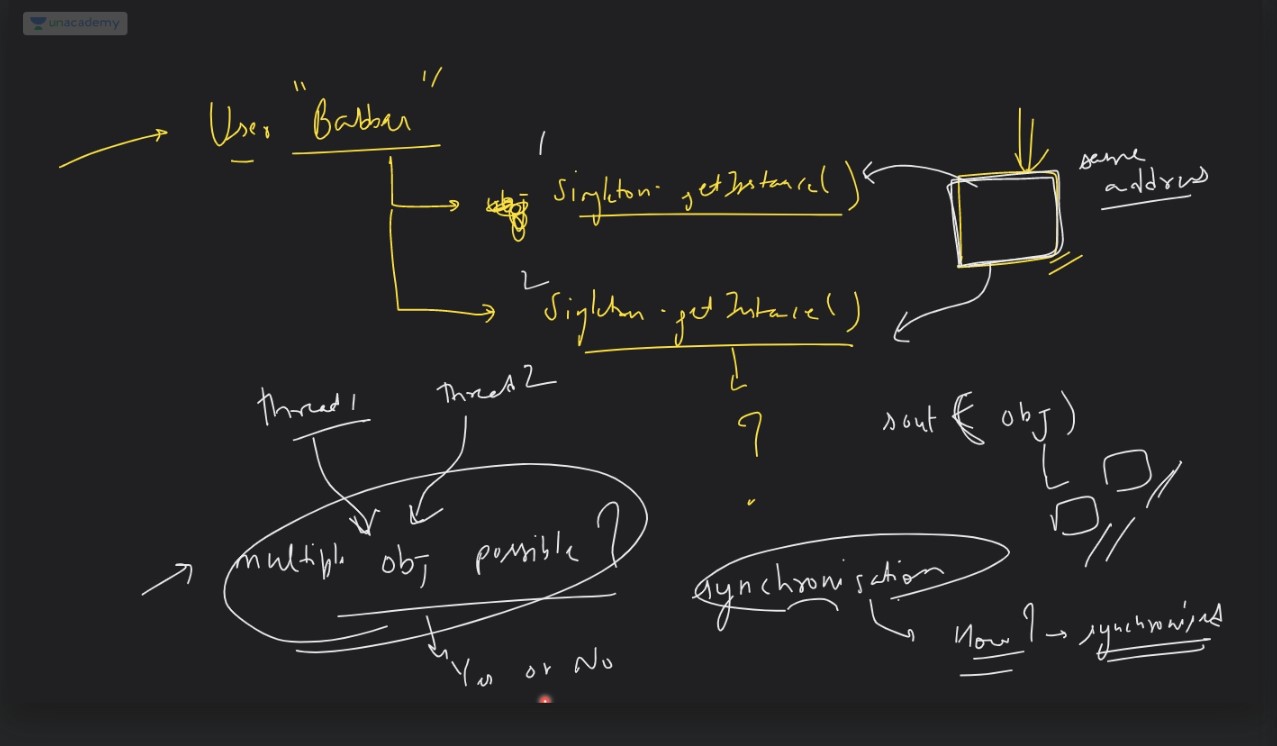 unacademy
User "Babbar"
1 Singleton.getInstance()
same
address
2 Singleton.getInstance()
thread1
thread2
?
sout( obj)
multiple obj possible ?
synchronisation
How ? → synchronised
Yes or No